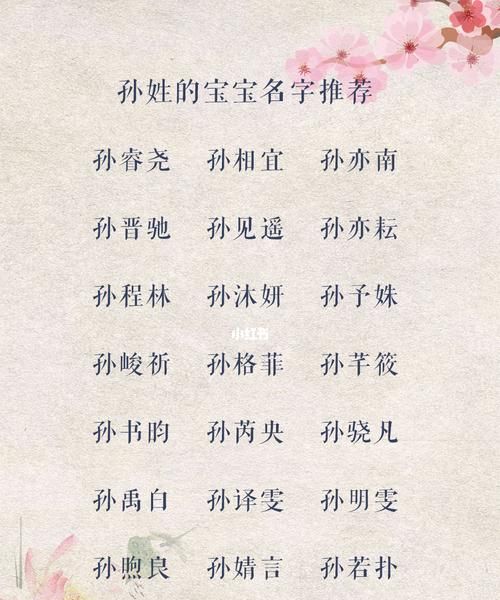 孙姓的宝宝名字推荐
孙睿尧 孙相宜 孙亦南
孙晋驰 孙见遥 孙亦耘
孙程林 孙沐妍 孙予姝
小红书
孙峻祈 孙格菲 孙芊筱
孙书昀 孙芮央 孙骁凡
孙禹白 孙译雯 孙明雯
孙煦良 孙婧言 孙若扑